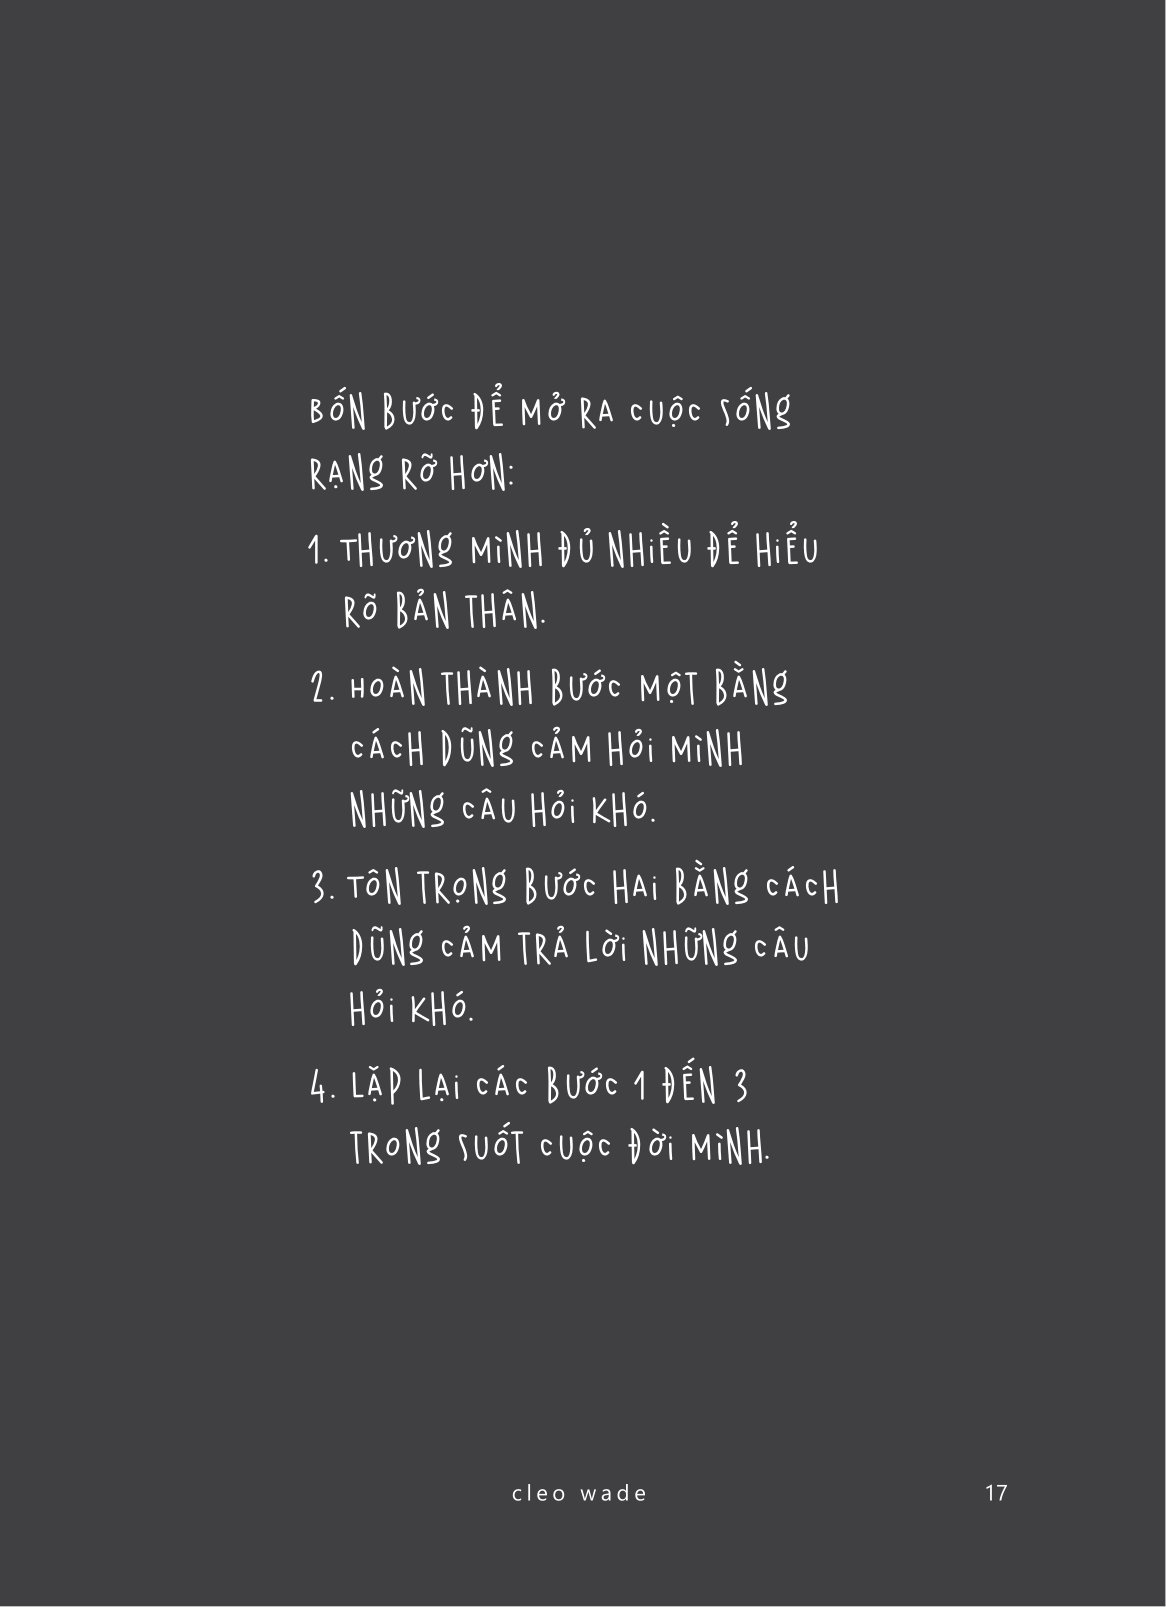 BỐN BƯỚC ĐỂ MỞ RA CUỘC SỐNG
RẠNG RỠ HƠN:
1. THƯƠNG MÌNH ĐỦ NHIỀU ĐỂ HIỂU
RÕ BẢN THÂN.
2. HOÀN THÀNH BƯỚC MỘT BẰNG
CÁCH DŨNG CẢM HỎI MÌNH
NHỮNG CÂU HỎI KHÓ.
3. TÔN TRỌNG BƯỚC HAI BẰNG CÁCH
DŨNG CẢM TRẢ LỜI NHỮNG CÂU
HỎI KHÓ.
4. LẶP LẠI CÁC BƯỚC 1 ĐẾN 3
TRONG SUỐT CUỘC ĐỜI MÌNH.
cleo wade 17